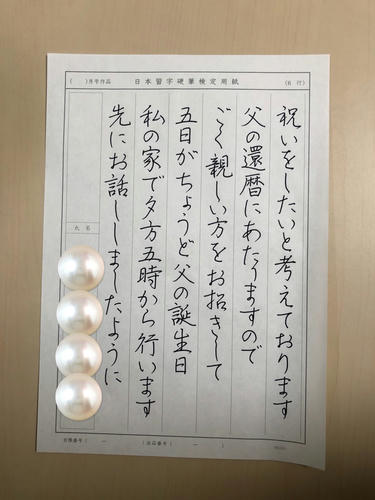 (　　)月号作品　日本習字硬筆検定用紙　(6行)
祝いをしたいと考えております
父の還暦にあたりますので
ごく親しい方をお招きして
五日がちょうど父の誕生日
私の家で夕方五時から行います
先にお話ししましたように
氏名
会員番号(　　ー　　)　(出品番号(　　ー　　)